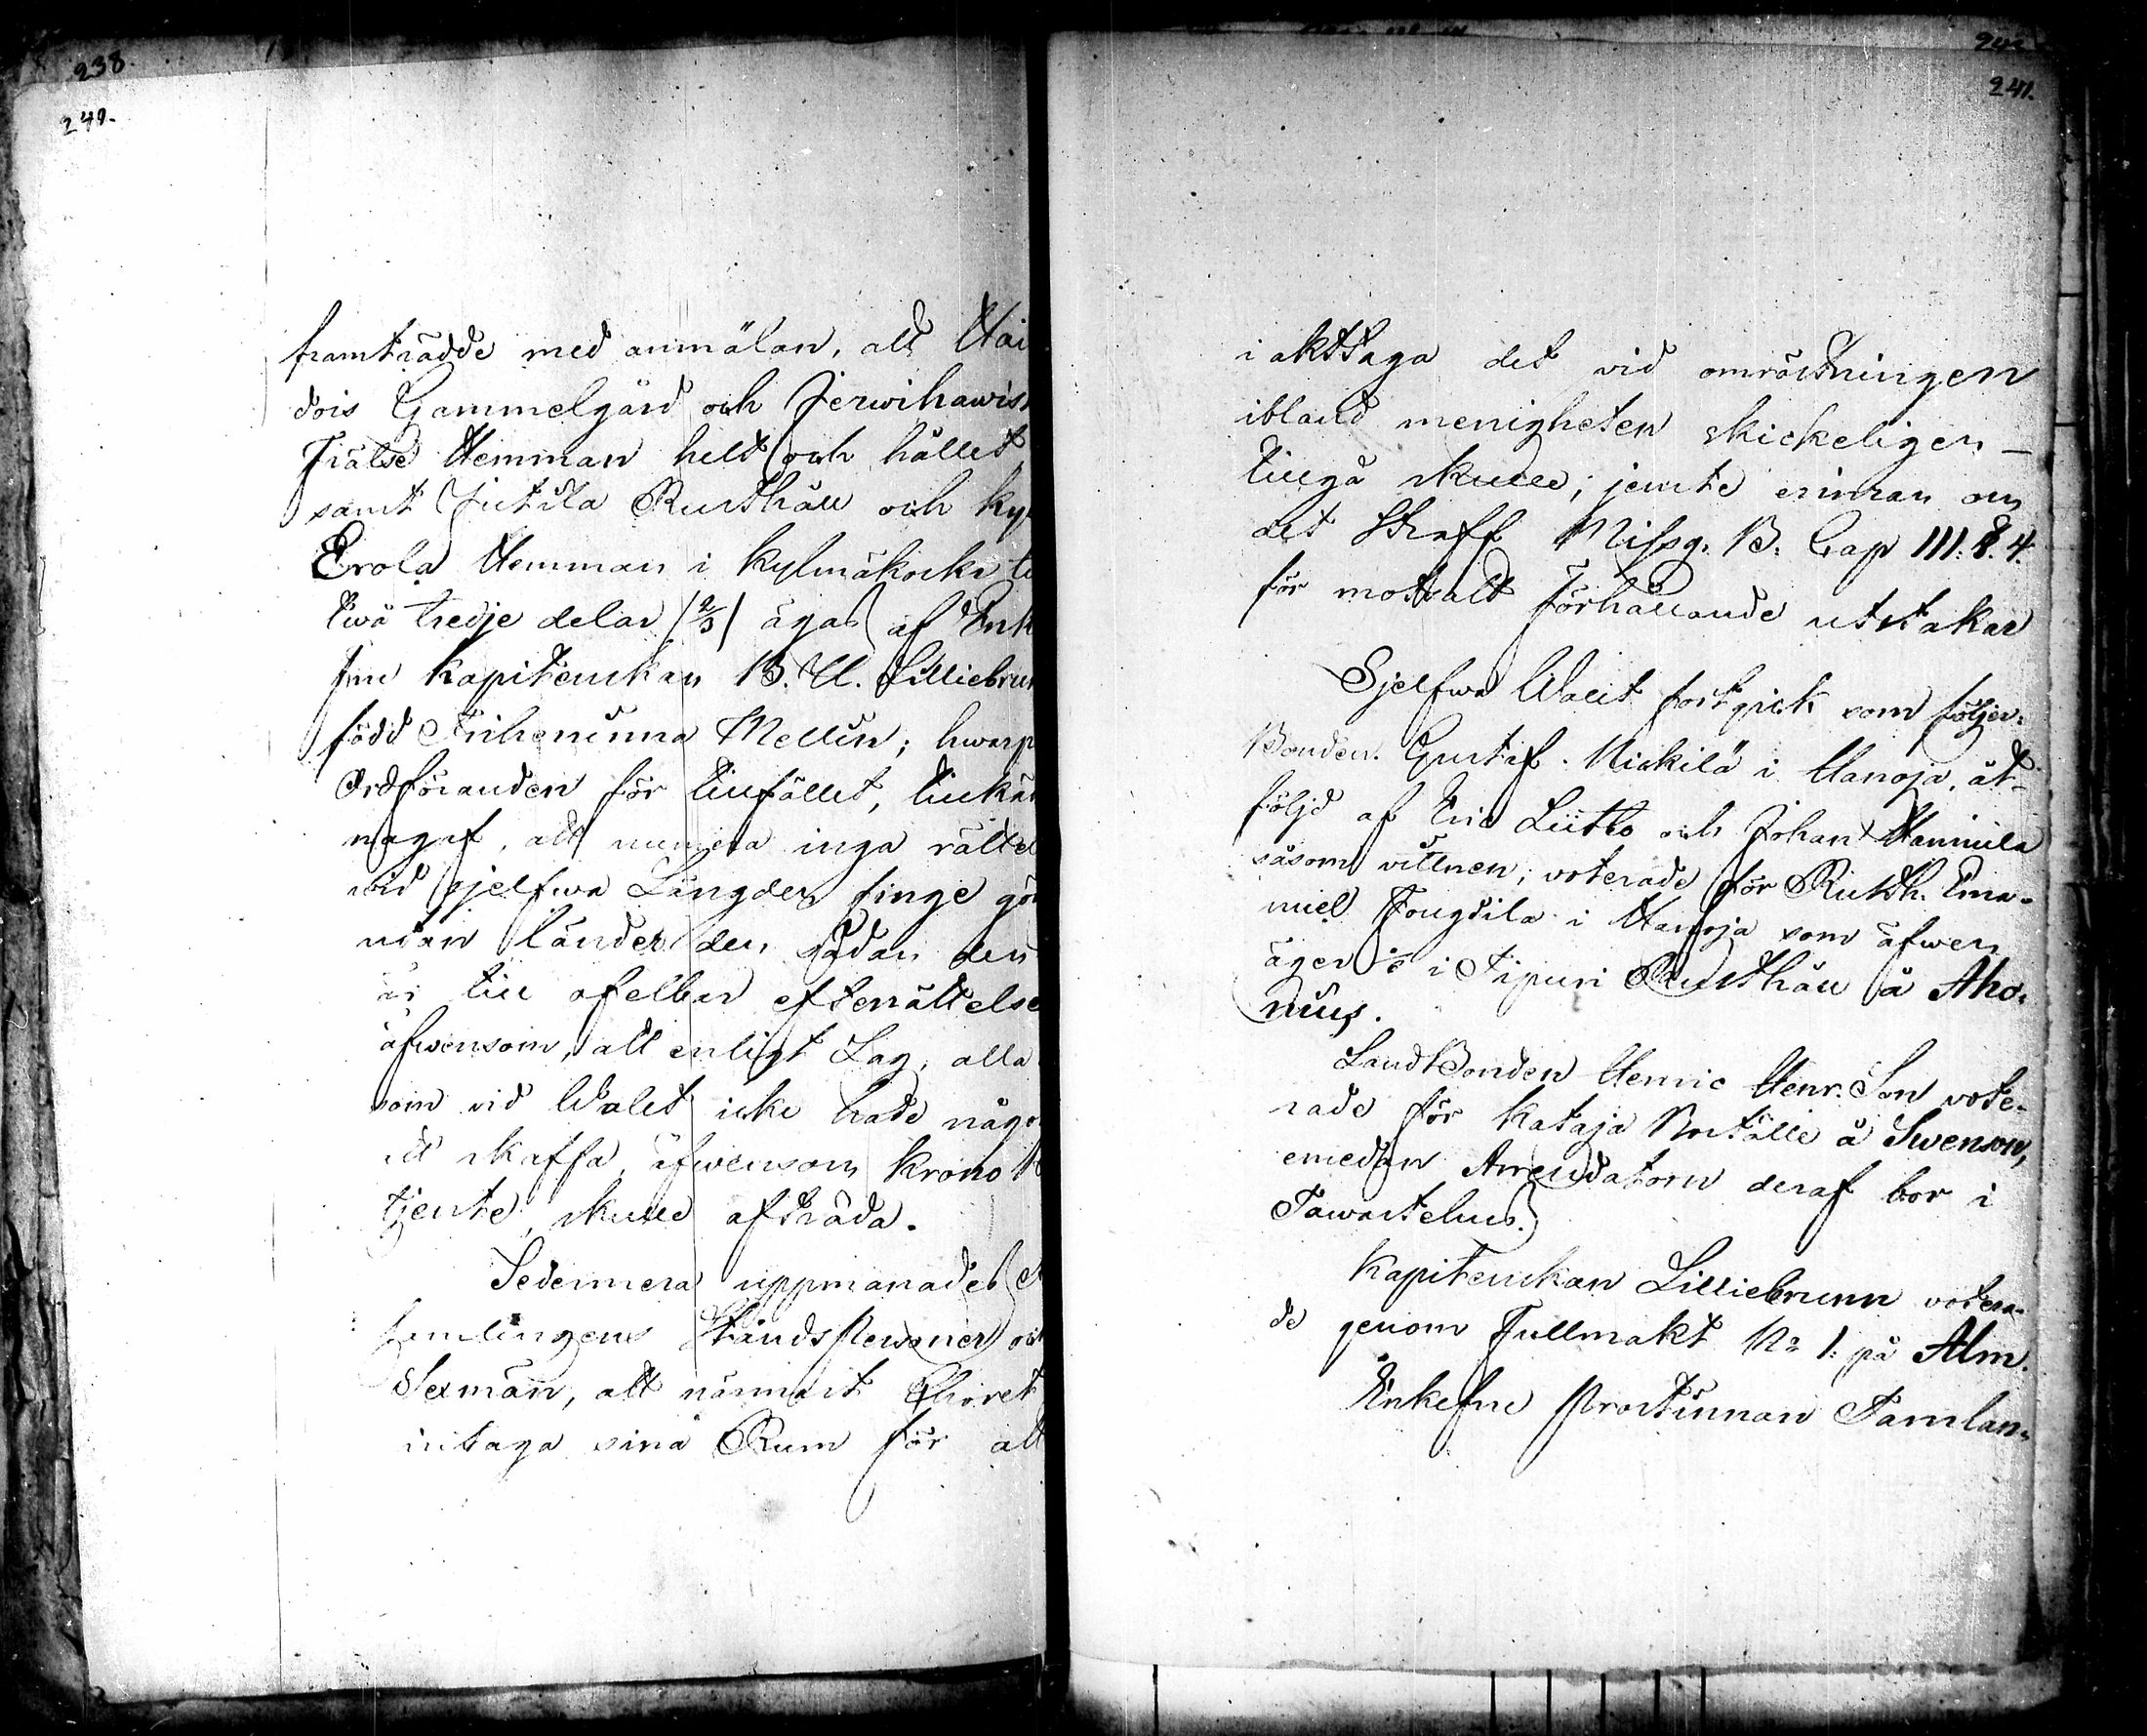 238.
240.
framträdde med anmälan, att Hai
dois Gammelgård och Jerwihawis
Frälse Hemman helt och hållet
samt Jutila Rusthåll och Ky
Erola Hemman i Kylmäkoski ti
twå tredje delar (2/3) ägas af Enk
fru Kapitenskan B. U. Lilliebrun
född Friherinna Mellin; hwarp
Ordföranden för tillfället, tillkän
nagaf, att numera inga rättel
wid sjelfwa Längden finge gö
utan länder den sådan den
är till ofelbar efterrättelse
äfwensom, att enligt Lag, alla
som wid Walet icke hade någo
att skaffa, äfwensom Krono B
tjente, skulle afträda.
Sedermera uppmanades
samlingens StåndsPersoner och
Sexmän, att närmast Choret
intaga sina Rum för att
241.
i akttaga det wid omröstningen
ibland menigheten skickeligen
tillgå skulle; jemte erinran om
det Straff Missg. B. Cap III. §. 4.
för motsatt förhållande utstakar
Sjelfwa Walet fortgick som följer:
Bonden Gustaf Mickilä i Hanoja, åt-
följd af Eric Liitto och Johan Hannula
såsom wittnen, voterade för Rusth. Ema-
nuel Fougdila i Hanoja som äfwen
äger i Sipuri Rusthåll å Aho-
nius.
LandtBonden Henric Henr. Son vote-
rade för Kataja Boställe å Swenson,
emedan Arrendatorn deraf bor i
Tawastehus.
Kapitenskan Lilliebrunn votera-
de genom Fullmakt No 1. på Alm.
Enkefru Prostinnan Tamlan-